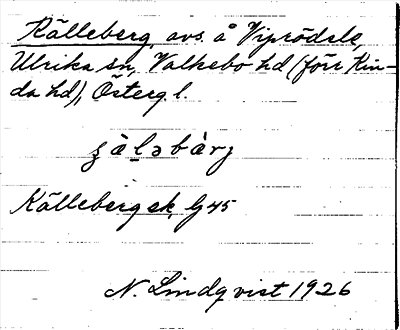 Källeberg, avs. å Viprödsle,
Ulrika sn, Valkebo hd (förr Kin-
da hd), Östergl.
Källeberg ek, G 45
N. Lindqvist 1926